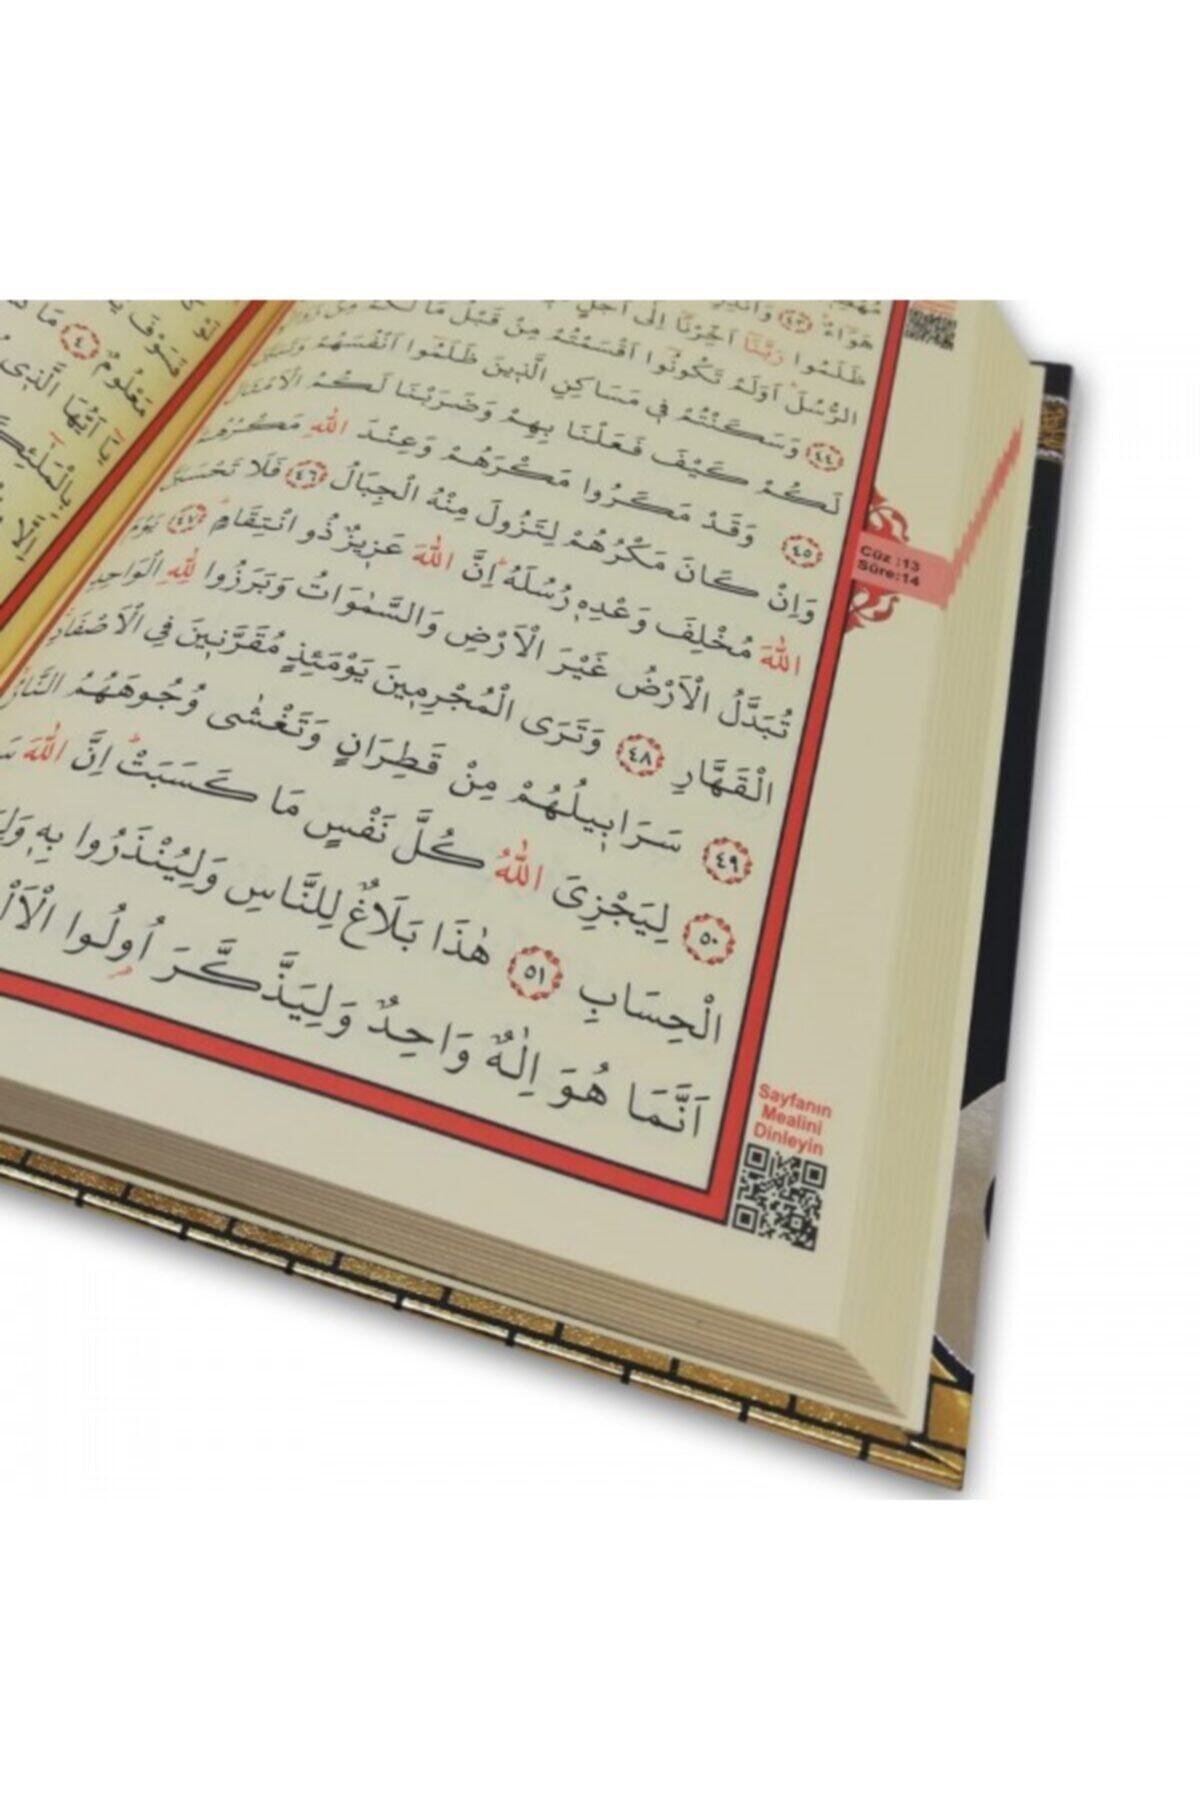 هَوَاءٌ ﴿٤٣﴾ وَاَنْذِرِ
ظَلَمُوا رَبَّنَا اَخِّرْنَا اِلٰى اَجَلٍ
الرُّسُلَ اَوَلَمْ تَكُونُوا اَقْسَمْتُمْ مِنْ قَبْلُ مَا لَكُمْ مِنْ زَوَالٍ
﴿٤٤﴾ وَسَكَنْتُمْ فٖي مَسَاكِنِ الَّذٖينَ ظَلَمُوا اَنْفُسَهُمْ وَتَبَيَّنَ
لَكُمْ كَيْفَ فَعَلْنَا بِهِمْ وَضَرَبْنَا لَكُمُ الْاَمْثَالَ
﴿٤٥﴾ وَقَدْ مَكَرُوا مَكْرَهُمْ وَعِنْدَ اللّٰهِ مَكْرُهُمْ
وَاِنْ كَانَ مَكْرُهُمْ لِتَزُولَ مِنْهُ الْجِبَالُ ﴿٤٦﴾ فَلَا تَحْسَبَنَّ
اللّٰهَ مُخْلِفَ وَعْدِهٖ رُسُلَهُ اِنَّ اللّٰهَ عَزٖيزٌ ذُو انْتِقَامٍ ﴿٤٧﴾ يَوْمَ
تُبَدَّلُ الْاَرْضُ غَيْرَ الْاَرْضِ وَالسَّمٰوَاتُ وَبَرَزُوا لِلّٰهِ الْوَاحِدِ
الْقَهَّارِ ﴿٤٨﴾ وَتَرَى الْمُجْرِمٖينَ يَوْمَئِذٍ مُقَرَّنٖينَ فِي الْاَصْفَادِ
﴿٤٩﴾ سَرَابٖيلُهُمْ مِنْ قَطِرَانٍ وَتَغْشٰى وُجُوهَهُمُ النَّارُ
﴿٥٠﴾ لِيَجْزِيَ اللّٰهُ كُلَّ نَفْسٍ مَا كَسَبَتْ اِنَّ اللّٰهَ
الْحِسَابِ ﴿٥١﴾ هٰذَا بَلَاغٌ لِلنَّاسِ وَلِيُنْذَرُوا بِهٖ
اَنَّمَا هُوَ اِلٰهٌ وَاحِدٌ وَلِيَذَّكَّرَ اُولُوا
Cüz :13
Sûre:14
Sayfanın
Mealini
Dinleyin